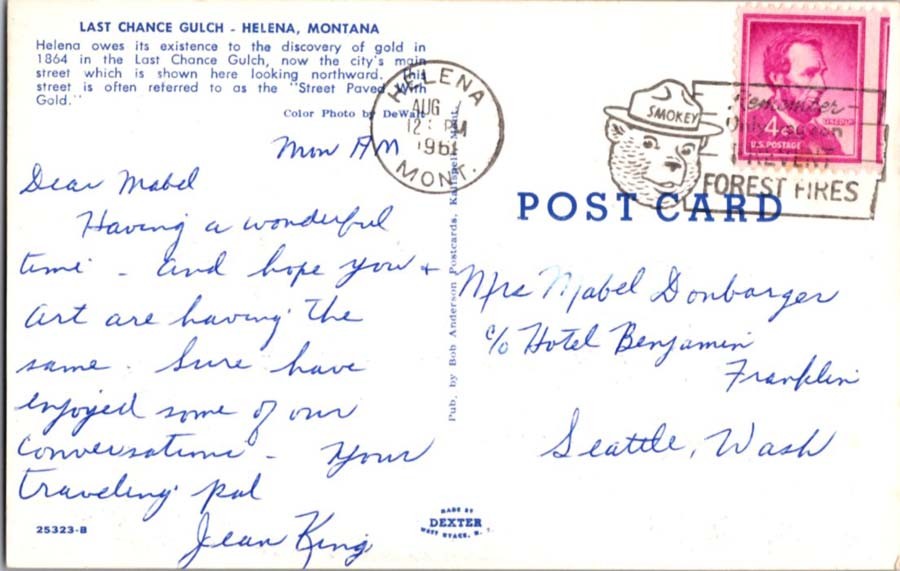 LAST CHANCE GULCH - HELENA, MONTANA
Helena owes its existence to the discovery of gold in
1864 in the Last Chance Gulch, now the city's main
street which is shown here looking northward. This
street is often referred to as the "Street Paved With
Gold."
Color Photo by DeWalt
Mon AM
Dear Mabel
Having a wonderful
time - and hope you +
Art are having the
same. Sure have
enjoyed some of our
conversations - Your
traveling pal
Jean King
25323-B
HELENA
AUG
12 PM
1961
MONT.
Pub. by Bob Anderson Postcards, Kalispell, Mont.
MADE BY
DEXTER
WEST NYACK, N.
SMOKEY
Remember-
Only you can
PREVENT
FOREST FIRES
4¢
U.S. POSTAGE
LINCOLN
POST CARD
Mrs Mabel Donbarger
c/o Hotel Benjamin
Franklin
Seattle, Wash